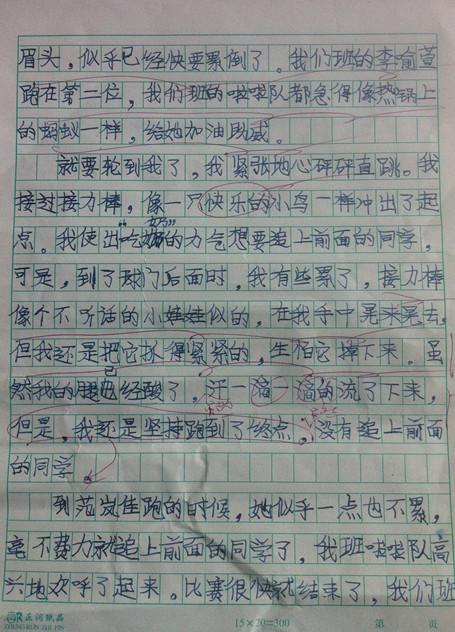 眉头，似乎已经快要累倒了。我们班的李渝萱
跑在第二位，我们班的啦啦队都急得像热锅上
的蚂蚁一样，给她加油助威。
就要轮到我了，我紧张地心砰砰直跳。我
接过接力棒，像一只快乐的小鸟一样冲出了起
点。我使出“吃奶”的力气想要追上前面的同学，
可是，到了球门后面时，我有些累了，接力棒
像个不听话的小娃娃似的，在我手中晃来晃去，
但我还是把它抓得紧紧的，生怕它掉下来。虽
然我的腿已经酸了，汗一滴一滴的流了下来，
但是，我还是坚持跑到了终点，没有追上前面
的同学。
到范岚佳跑的时候，她似乎一点也不累，
毫不费力就追上前面的同学了，我班啦啦队高
兴地欢呼了起来。比赛很快就结束了，我们班
正润纸品
ZHENG RUN ZHI PIN
15×20=300
第 页